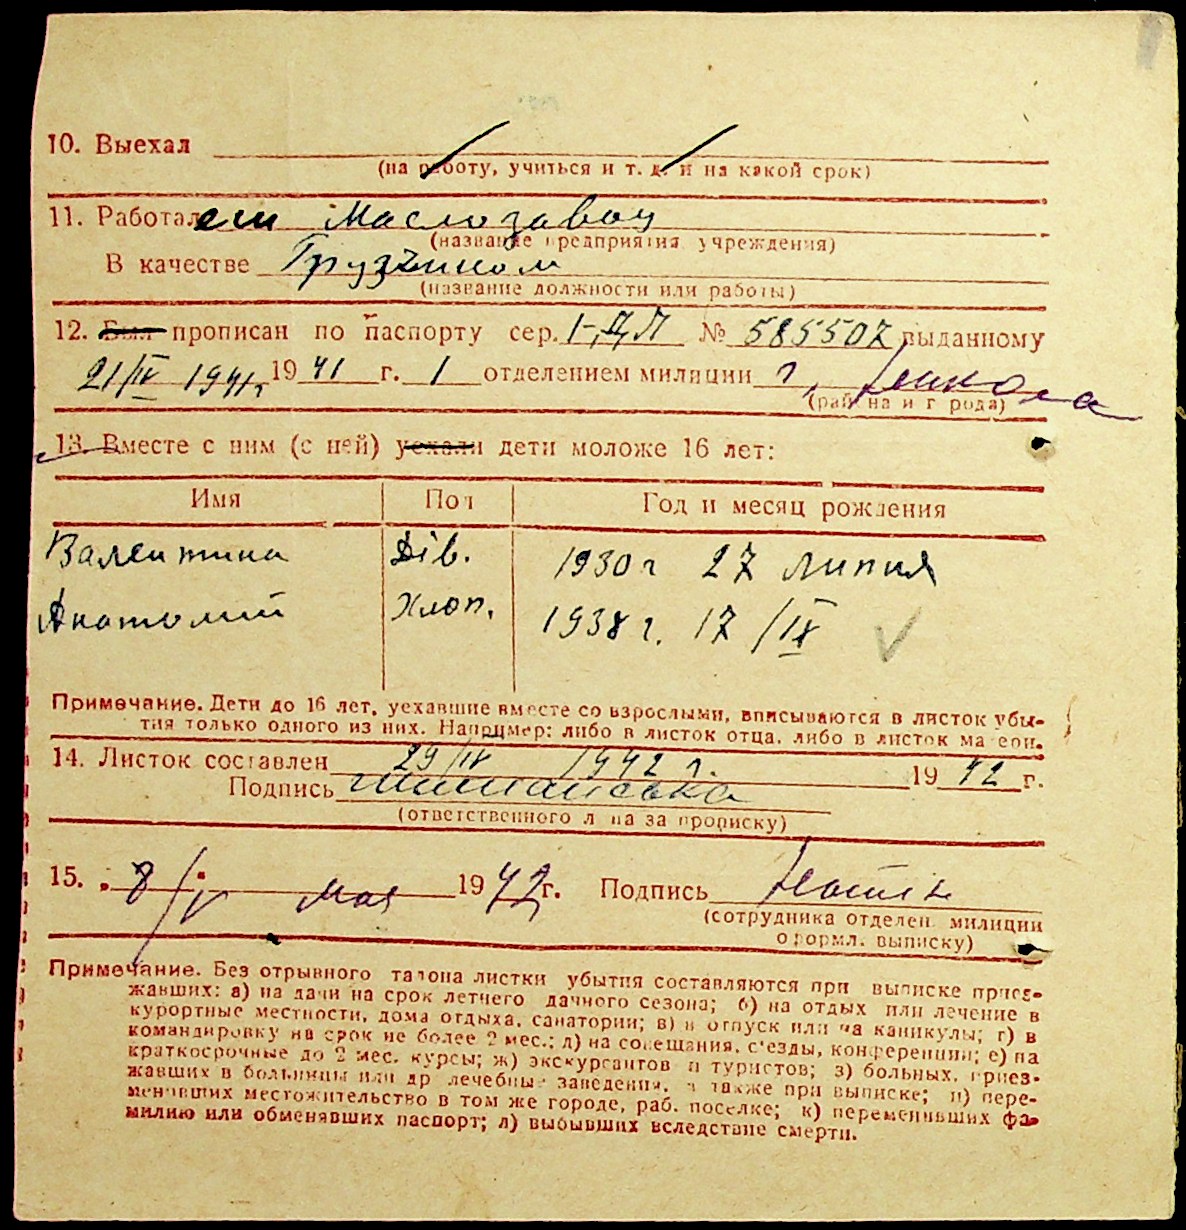 10. Выехал
(на работу, учиться и т. д. и на какой срок)
11. Работал Маслозавод
(название предприятия учреждения)
В качестве Грузчиком
(название должности или работы)
12. Был прописан по паспорту сер. І-ДЛ № 585507 выданному
21/IV 1941г. 1941 г. 1 отделением милиции г.
(района и города)
13. Вместе с ним (с ней) уехали дети моложе 16 лет:
Имя Пол Год и месяц рождения
Валентина Дів. 1930 г 27 липня
Анатолий Хлоп. 1938 г. 17/IX
Примечание. Дети до 16 лет, уехавшие вместе со взрослыми, вписываются в листок убы-
тия только одного из них. Например: либо в листок отца, либо в листок матери.
14. Листок составлен 29/IV 1942 г. 1942 г.
Подпись
(ответственного лица за прописку)
15. 8/V мая 1942 г. Подпись
(сотрудника отделен. милиции
оформл. выписку)
Примечание. Без отрывного талона листки убытия составляются при выписке приез-
жавших: а) на дачи на срок летнего дачного сезона; б) на отдых или лечение в
курортные местности, дома отдыха, санатории; в) в отпуск или на каникулы; г) в
командировку на срок не более 2 мес.; д) на совещания, съезды, конференции; е) на
краткосрочные до 2 мес. курсы; ж) экскурсантов и туристов; з) больных, приез-
жавших в больницы или др лечебные заведения, а также при выписке; и) пере-
менивших местожительство в том же городе, раб. поселке; к) переменивших фа-
милию или обменявших паспорт; л) выбывших вследствие смерти.